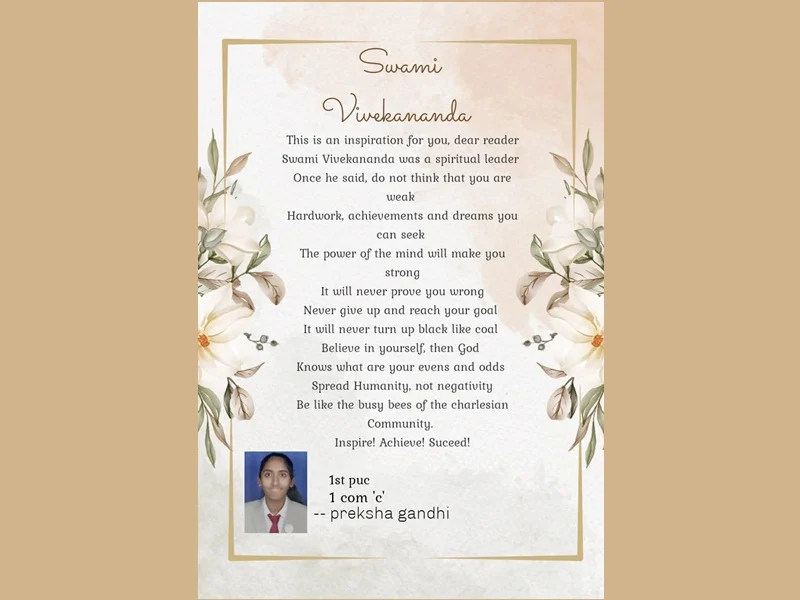 Swami
Vivekananda
This is an inspiration for you, dear reader
Swami Vivekananda was a spiritual leader
Once he said, do not think that you are
weak
Hardwork, achievements and dreams you
can seek
The power of the mind will make you
strong
It will never prove you wrong
Never give up and reach your goal
It will never turn up black like coal
Believe in yourself, then God
Knows what are your evens and odds
Spread Humanity, not negativity
Be like the busy bees of the charlesian
Community.
Inspire! Achieve! Suceed!
1st puc
1 com 'c'
-- preksha gandhi